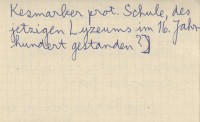 Kesmarker prot. Schule, des
jetzigen Lyzeums im 16. Jahr-
hundert gestanden?)